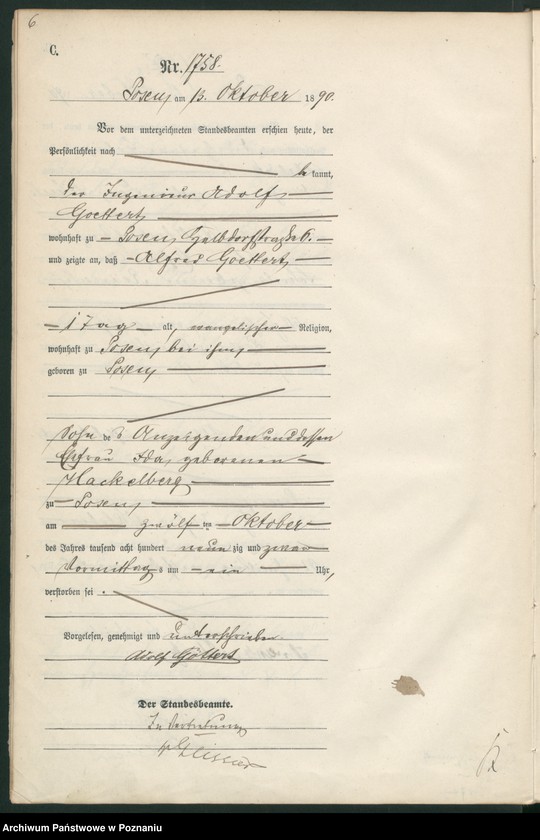 6
C.
Nr. 1758.
Posen, am 13. Oktober 1890.
Vor dem unterzeichneten Standesbeamten erschien heute, der
Persönlichkeit nach
be kannt,
der Ingenieur Adolf
Goettert
wohnhaft zu Posen, Halbdorfstraße 6.
und zeigte an, daß Alfred Goettert,
1 Tag alt, evangelischer Religion,
wohnhaft zu Posen, bei ihm,
geboren zu Posen,
Sohn des Anzeigenden und dessen
Ehefrau Ida, geborenen
Hackelberg
zu Posen,
am zwölf ten Oktober
des Jahres tausend acht hundert neun zig und zwar
Vormittags um ein Uhr,
verstorben sei.
Vorgelesen, genehmigt und unterschrieben.
Adolf Göttert
Der Standesbeamte.
In Vertretung
Archiwum Państwowe w Poznaniu